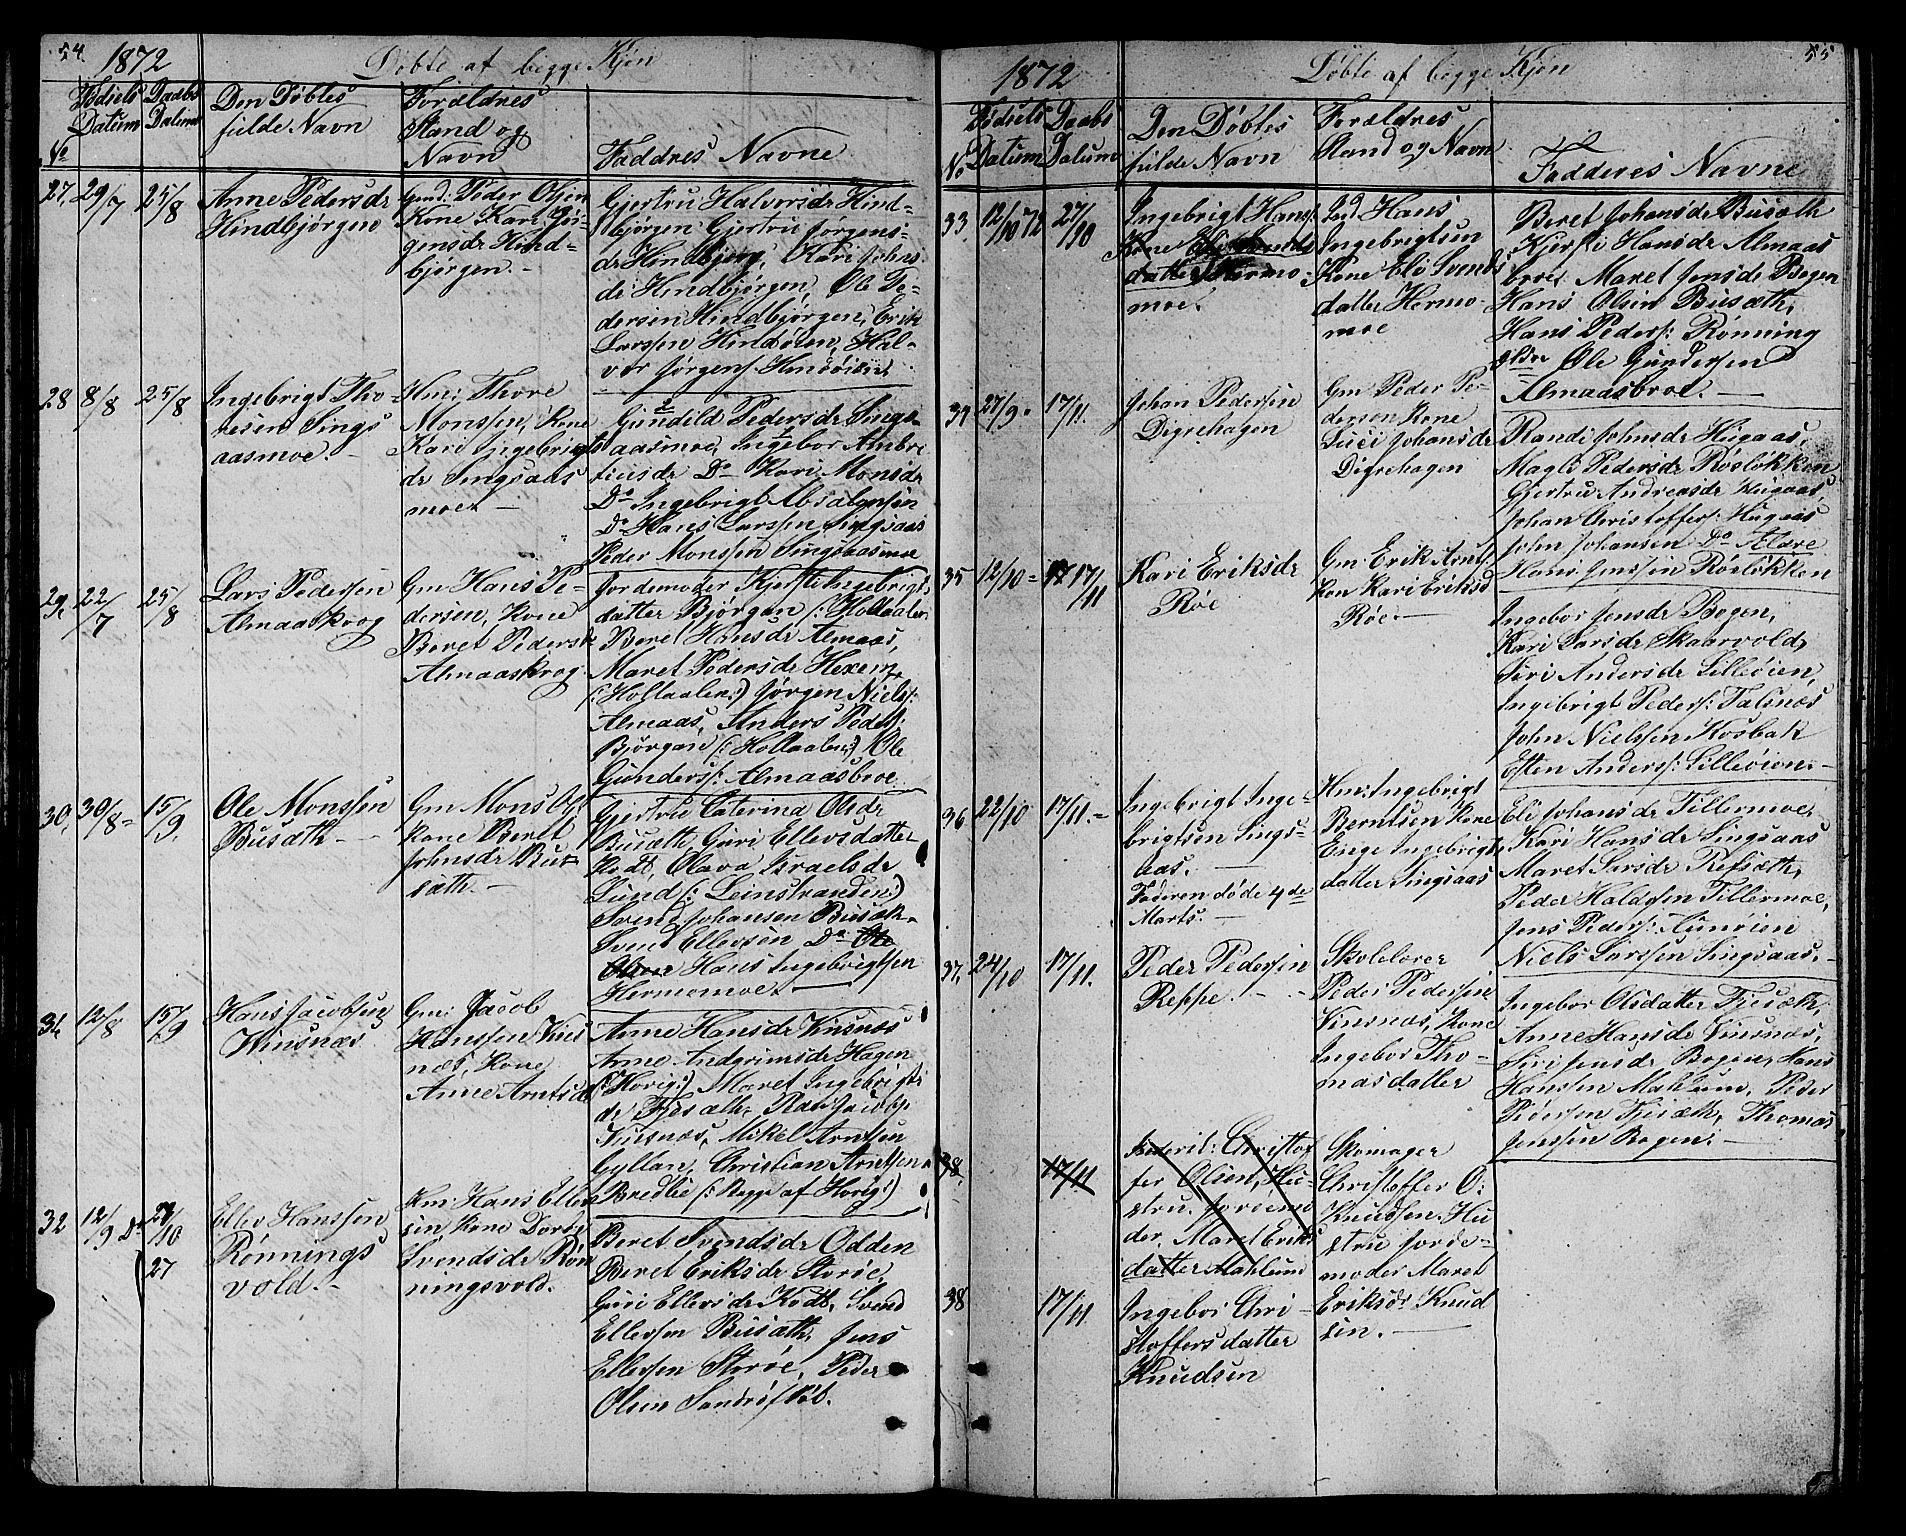 54.
1872
Døbte af begge Kjøn
No
Fødsels
Datum
Daabs
Datum
Den Døbtes
fulde Navn
Forældres
Stand og
Navn
Faddres Navne
27. 29/7 25/8
Anne Pedersdr
Hindbjørgen
Gmd. Peder Olsen
Kone Kari Jør-
gensdr Hind-
bjørgen.-
Gjertru Halvorsdr Hind-
bjørgen Gjertru Jørgens-
dr Hindbjørg, Kari Johns
dr Hindbjørgen, Ole Pe-
dersen Hindbjørgen, Erik
Larssen Hindøien, Hal-
vor Jørgens. Hindøien
28 8/8 25/8
Ingebrigt Tho-
resen Sings
aasmoe.-
Hm: Thore
Monssen, Kone
Kari Ingebrigts
dr Singsaas
moe. -
Gunild Pedersdr Sings-
aasmoe, Ingebor Ambro
siusdr Do Kari Monsdr
Do Ingebrigt Absalonsen
Do Hans Larssen Singsaas
Peder Monssen Singsaasmoe
29. 22/7 25/8
Lars Pedersen
Almaaskrog
Gm Hans Pe-
dersen, Kone
Beret Pedersdr
Almaaskrog.
Jordemoder Kjersti Ingebrigts
datter Bjørgan (: Holtaalen
Beret Hansdr Almaas,
Maret Pedersdr Hexem
(: Holtaalen:) Jørgen Niels:
Almaas, Anders Peders:
Bjørgan (: Holtaalen:) Ole
Gunders: Almaasbroe
30, 30/8 - 15/9.
Ole Monssen
Busæth -
Gm Mons Ols:
Kone Beret
Johnsdr Bu-
sæth. -
Gjertru Caterina Olsdr
Busæth, Guri Ellevsdatter
Kodt, Olava Israelsdr
Lund (: Leinstranden:)
Svend Johansen Busæk-
Svend Ellevsen Do
Hans Ingebrigtsen
Hermomoe. -
31, 12/8 15/9
Hans Jacobsen
Winsnæs
Gm: Jacob
Hanssen Vins
næs, Kone
Anne Arntsdr
Anne Hansdr Vinsnæs
Anne Andgrimsdr Hagen
(: Horig:) Maret Ingebrigts
dr Fjesæth, Jacobs
Vinsnæs, Mikel Arntsen
Gyllan, Christian Arntsen
Bredlie (: af Horig:)
32 12/9 27/10
27
Ellev Hanssen
Rønnings
vold.-
Hm: Hans Ellev
sen Kone Dorte
Svendsdr Røn
ningsvold.
Beret Svendsdr Odden
Beret Eriksdr Storøe,
Guri Ellevsdr Kodt, Svend
Ellevsen Busæth, Jens
Ellevsen Storøe, Peder
Olsen
55
1872
Døbte af begge Kjøn
No
Fødsels
Datum
Daabs
Datum
Den Døbtes
fulde Navn
Forældres
Stand og Navn
Fadderes Navne
33 12/10 72 27/10
Ingebrigt Hans
Kone Eli Svends
datter Hermo-
moe.
Ind Hans
Ingebrigtsen
Kone Eli Svends
datter Hermo-
moe
Beret Johansdr Busæth
Kjersti Hansdr Almaas
broe, Maret Jensdr Bogen
Hans Olsen Busæth,
Hans Peders: Rønning
ældre Ole Gundersen
Almaasbroe. -
34 27/9. 17/11.
Johan Pedersen
Digrehagen
Gm Peder Pe-
dersen Kone
Luci Johansdr
Digrehagen
Randi Johnsdr Hugaas,
Magli Pedersdr Røsløkken
Gjertru Andreasdr Hugaas
Johan Christoffers: Hugaas
John Johansen Do Ældre
Hans Jenssen Røsløkken
35 12/10 = 17/11
Kari Eriksdr
Røe
Gm Erik Arnts
Kon Kari Eriksd
Røe. -
Ingebor Jensdr Bogen,
Kari Larsdr Skaarvold,
Siri Andersdr Lilleøien,
Ingebrigt Peders: Talsnæs
John Nielssen Kosbak
Esten Anders: Lilleøien.-
36 22/10 17/11.-
Ingebrigt Inge-
brigtsen Sings-
aas. -
Faderen døde 4de
Marts. -
Hm: Ingebrigt
Berntsen Kone
Enge Ingebrigts
datter Singsaas
Eli Johansdr Tillermoe,
Kari Hansdr Singsaas
Maret Larsdr Refsæth,
Peder Haldosen Tillermoe,
Jens Peders: Aunøien
Niels Larssen Singsaas. -
37. 24/10 17/11.
Peder Pedersen
Reppe. - -
Skolelærer
Peder Pedersen
Vinsnæs, Kone
Ingebor Tho-
masdatter
Ingebor Olsdatter Fjesæth,
Anne Hansdr Vinsnæs,
Siri Jensdr Bogen, Hans
Hanssen Mahlum, Peder
Pedersen Fjesæth, Thomas
Jenssen Bogen. -
38. 17/11
Frederik: Christof
fer Olsen, Hu-
stru. Jordemo
der, Maret Eriks
datter Mahlum
Skomager
Christoffer O:
Knudsen. Hu
stru Jorde-
moder Maret
Eriksdr Knud
sen. -
38 17/11
Ingebor Chri-
stoffersdatter
Knudsen